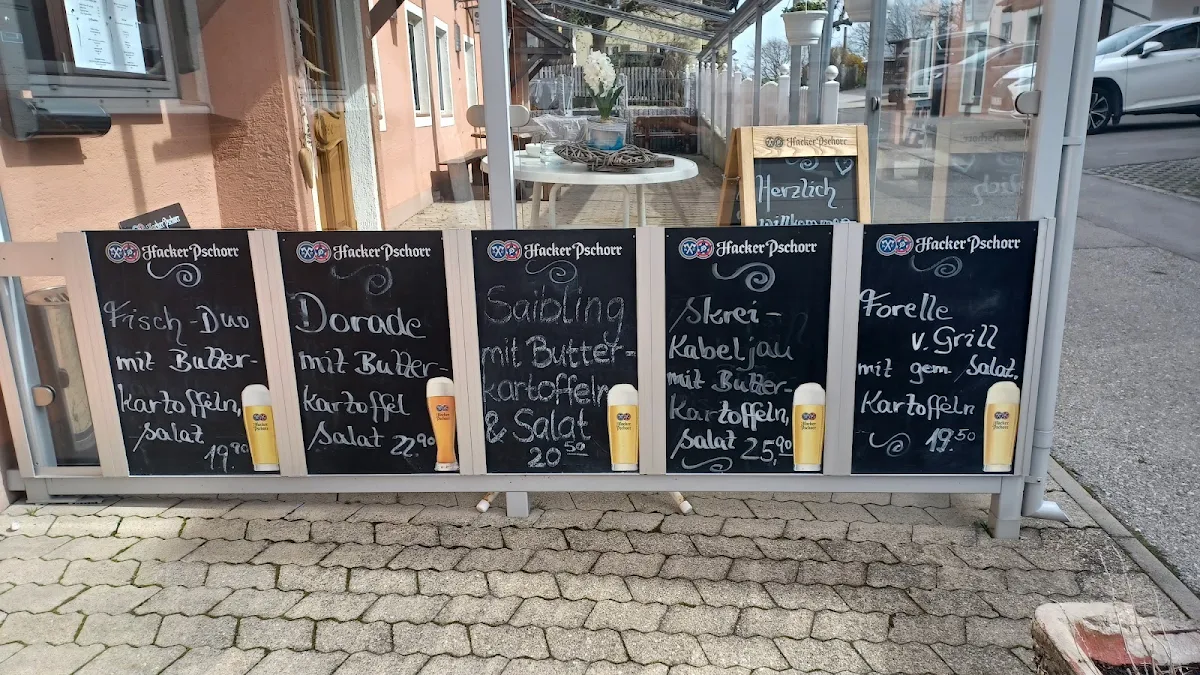 Hacker-Pschorr
Herzlich
willkommen
Hacker-Pschorr
Fisch-Duo
mit Butter-
kartoffeln,
Salat
19.90
Hacker-Pschorr
Dorade
mit Butter-
kartoffel
Salat 22.90
Hacker-Pschorr
Saibling
mit Butter-
kartoffeln
& Salat
20 50
Hacker-Pschorr
Skrei-
Kabeljau
mit Butter-
Kartoffeln,
Salat 25,90
Hacker-Pschorr
Forelle
v. Grill
mit gem. Salat,
Kartoffeln
19.50